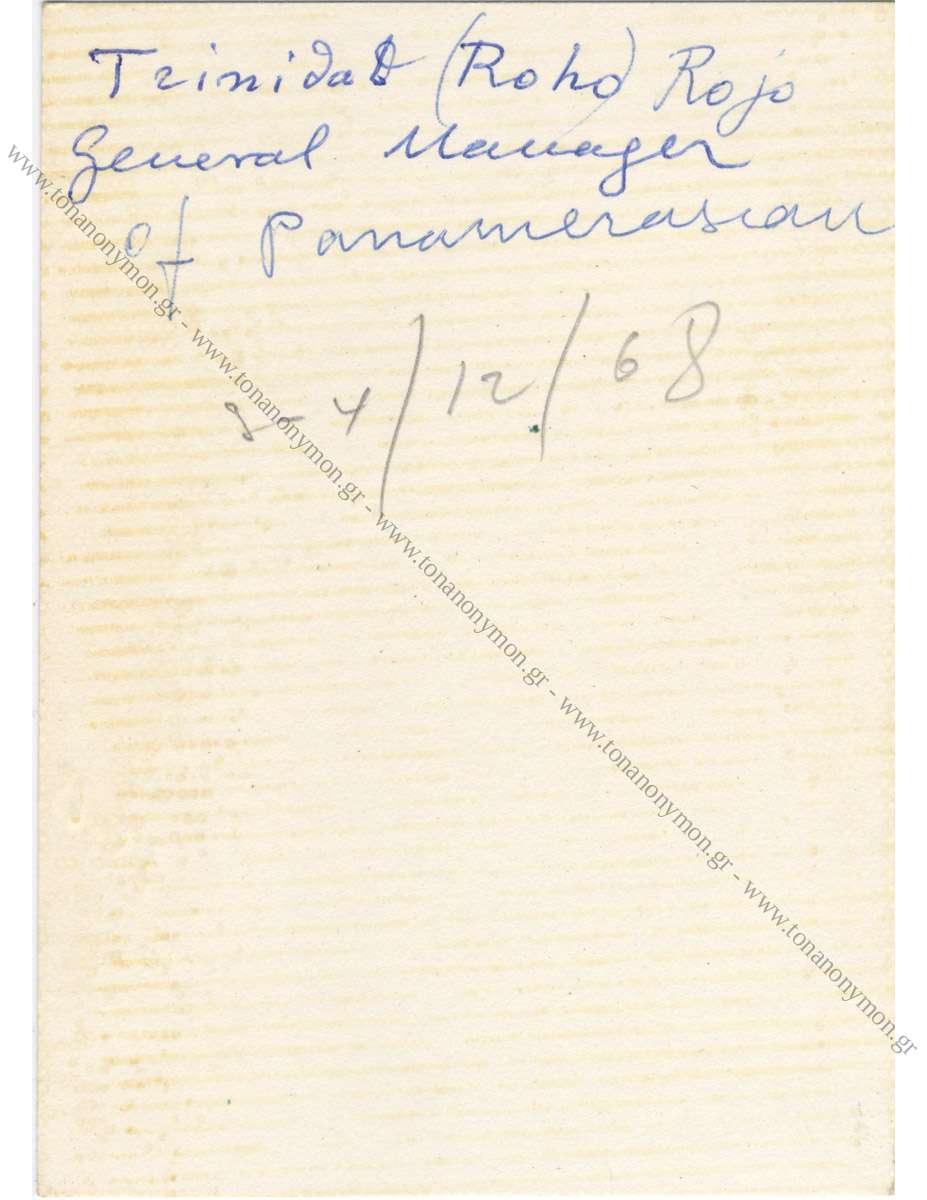 Trinidad (Roho) Rojo
General Manager
of Panamerasian
4/12/68
www.tonanonymon.gr - www.tonanonymon.gr - www.tonanonymon.gr - www.tonanonymon.gr - www.tonanonymon.gr